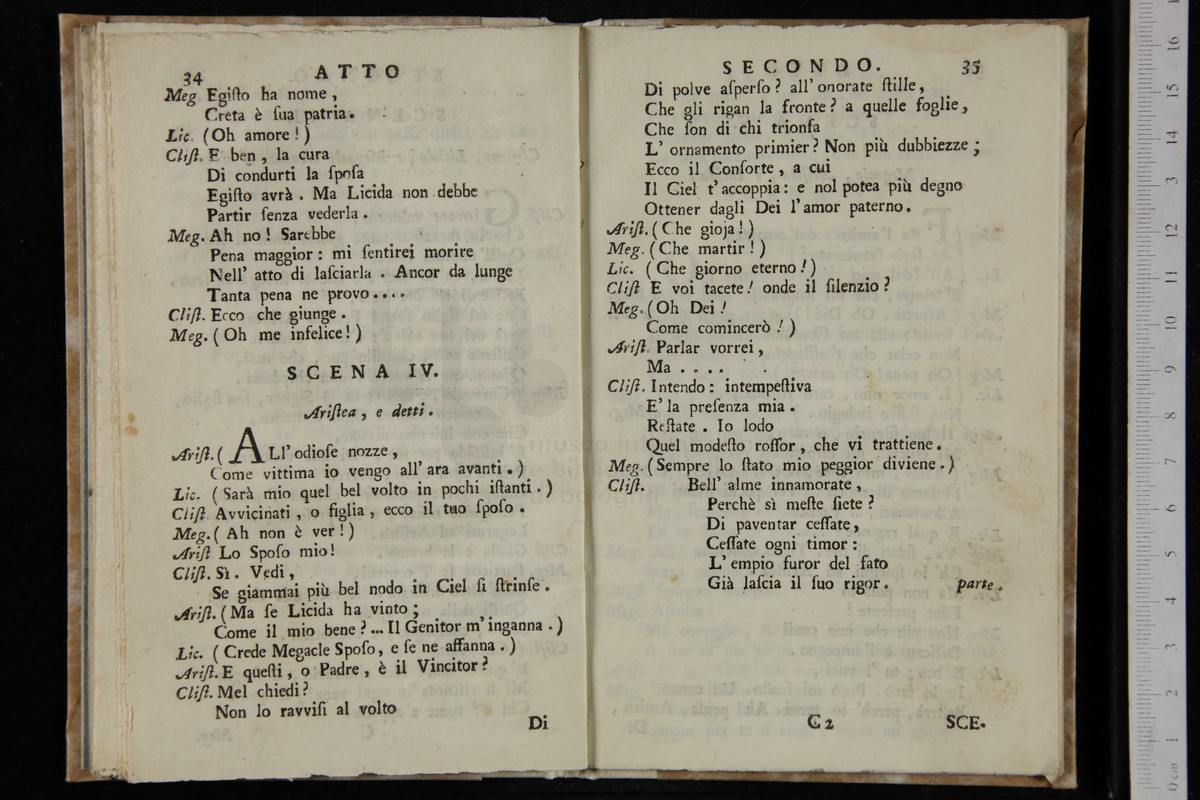 34
ATTO
Meg Egiſto ha nome ,
Creta è ſua patria.
Lic. (Oh amore ! )
Cliſt. E ben , la cura
Di condurti la ſpoſa
Egiſto avrà . Ma Licida non debbe
Partir ſenza vederla .
Meg. Ah no ! Sarebbe
Pena maggior : mi ſentirei morire
Nell' atto di laſciarla . Ancor da lunge
Tanta pena ne provo....
Cliſt. Ecco che giunge .
Meg. ( Oh me infelice ! )
SCENA IV.
Ariſtea , e detti .
Ariſt. ( ALl' odioſe nozze ,
Come vittima io vengo all' ara avanti . )
Lic. ( Sarà mio quel bel volto in pochi iſtanti . )
Cliſt. Avvicinati , o figlia , ecco il tuo ſpoſo .
Meg. ( Ah non è ver ! )
Ariſt Lo Spoſo mio !
Cliſt. Sì . Vedi ,
Se giammai più bel nodo in Ciel ſi ſtrinſe .
Ariſt. (Ma ſe Licida ha vinto ;
Come il mio bene ? ... Il Genitor m' inganna . )
Lic. ( Crede Megacle Spoſo , e ſe ne affanna . )
Ariſt. E queſti , o Padre , è il Vincitor ?
Cliſt. Mel chiedi ?
Non lo ravviſi al volto
Di
SECONDO.
35
Di polve aſperſo ? all' onorate ſtille,
Che gli rigan la fronte ? a quelle foglie,
Che ſon di chi trionfa
L' ornamento primier ? Non più dubbiezze ;
Ecco il Conſorte , a cui
Il Ciel t' accoppia : e nol potea più degno
Ottener dagli Dei l'amor paterno.
Ariſt. ( Che gioja ! )
Meg. (Che martir ! )
Lic. (Che giorno eterno ! )
Cliſt E voi tacete ! onde il ſilenzio ?
Meg. (Oh Dei !
Come comincerò ! )
Ariſt. Parlar vorrei ,
Ma . . . .
Cliſt. Intendo : intempeſtiva
E' la preſenza mia .
Reſtate . Io lodo
Quel modeſto roſſor , che vi trattiene .
Meg. (Sempre lo ſtato mio peggior diviene . )
Cliſt. Bell' alme innamorate ,
Perchè sì meſte ſiete ?
Di paventar ceſſate,
Ceſſate ogni timor :
L' empio furor del fato
Già laſcia il ſuo rigor . parte .
C 2
SCE-